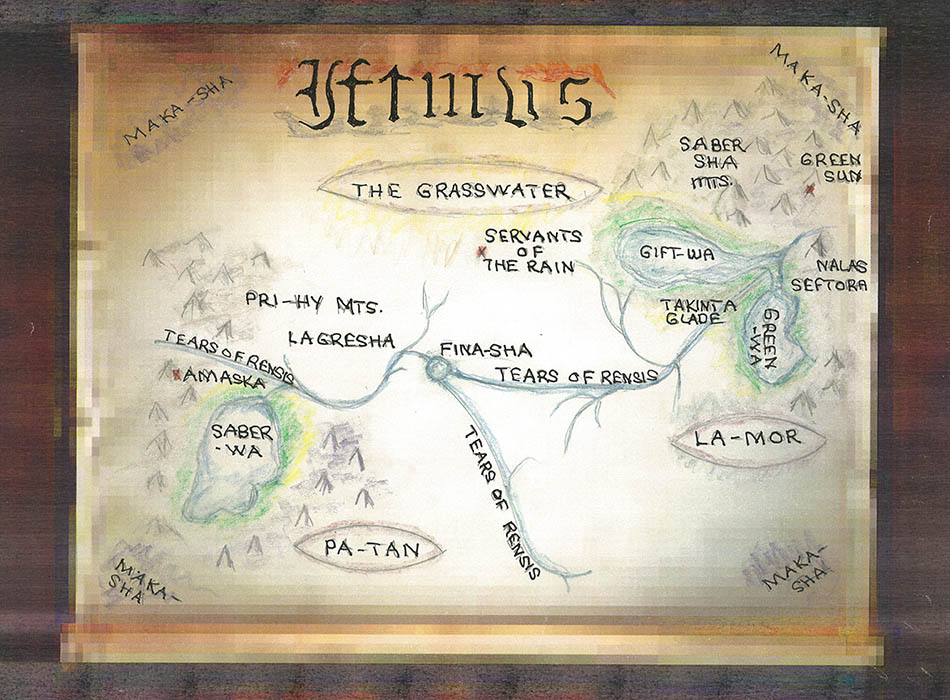 Iftmus
MAKA-SHA
MAKA-SHA
SABER
SHA
MTS.
GREEN
SUN
THE GRASSWATER
SERVANTS
OF
THE RAIN
GIFT-WA
NALAS
SEFTORA
PRI-HY MTS.
TAKINTA
GLADE
GREEN
-WA
LAGRESHA
FINA-SHA
TEARS OF RENSIS
TEARS OF RENSIS
AMASKA
SABER
-WA
LA-MOR
TEARS OF RENSIS
PA-TAN
MAKA-
SHA
MAKA-
SHA